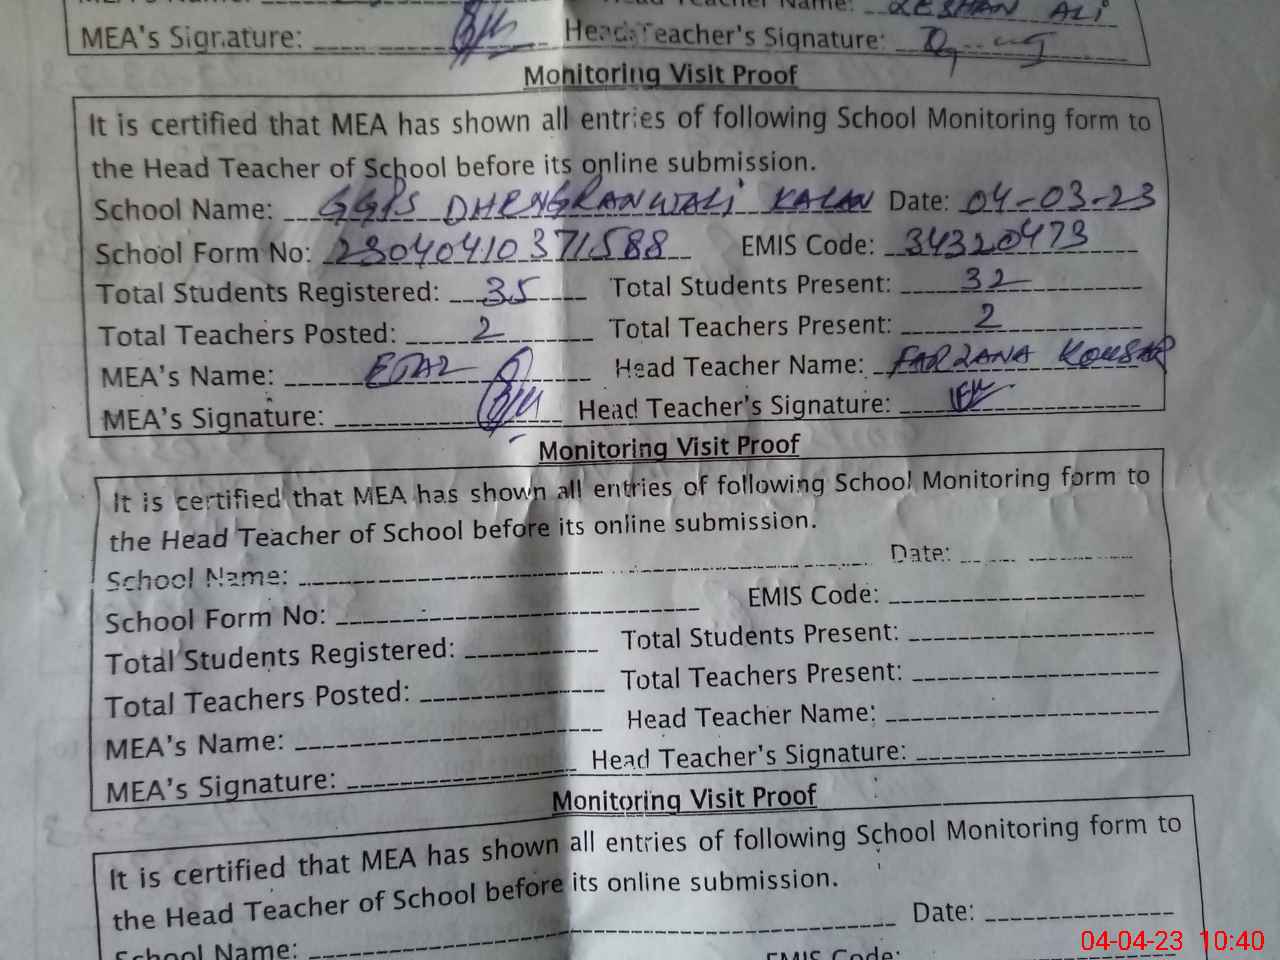 MEA's Signature: Head Teacher Name: ZESHAN ALI
Head Teacher's Signature:
Monitoring Visit Proof
It is certified that MEA has shown all entries of following School Monitoring form to
the Head Teacher of School before its online submission.
School Name: GGPS DHENGRANWALI KALAN Date: 04-03-23
School Form No: 23040410371588 EMIS Code: 34320473
Total Students Registered: 35 Total Students Present: 32
Total Teachers Posted: 2 Total Teachers Present: 2
MEA's Name: Head Teacher Name: FARZANA KOUSAR
MEA's Signature: Head Teacher's Signature:
Monitoring Visit Proof
It is certified that MEA has shown all entries of following School Monitoring form to
the Head Teacher of School before its online submission.
School Name: Date:
School Form No: EMIS Code:
Total Students Registered: Total Students Present:
Total Teachers Posted: Total Teachers Present:
MEA's Name: Head Teacher Name:
MEA's Signature: Head Teacher's Signature:
Monitoring Visit Proof
It is certified that MEA has shown all entries of following School Monitoring form to
the Head Teacher of School before its online submission.
School Name: Date:
EMIS Code:
04-04-23 10:40